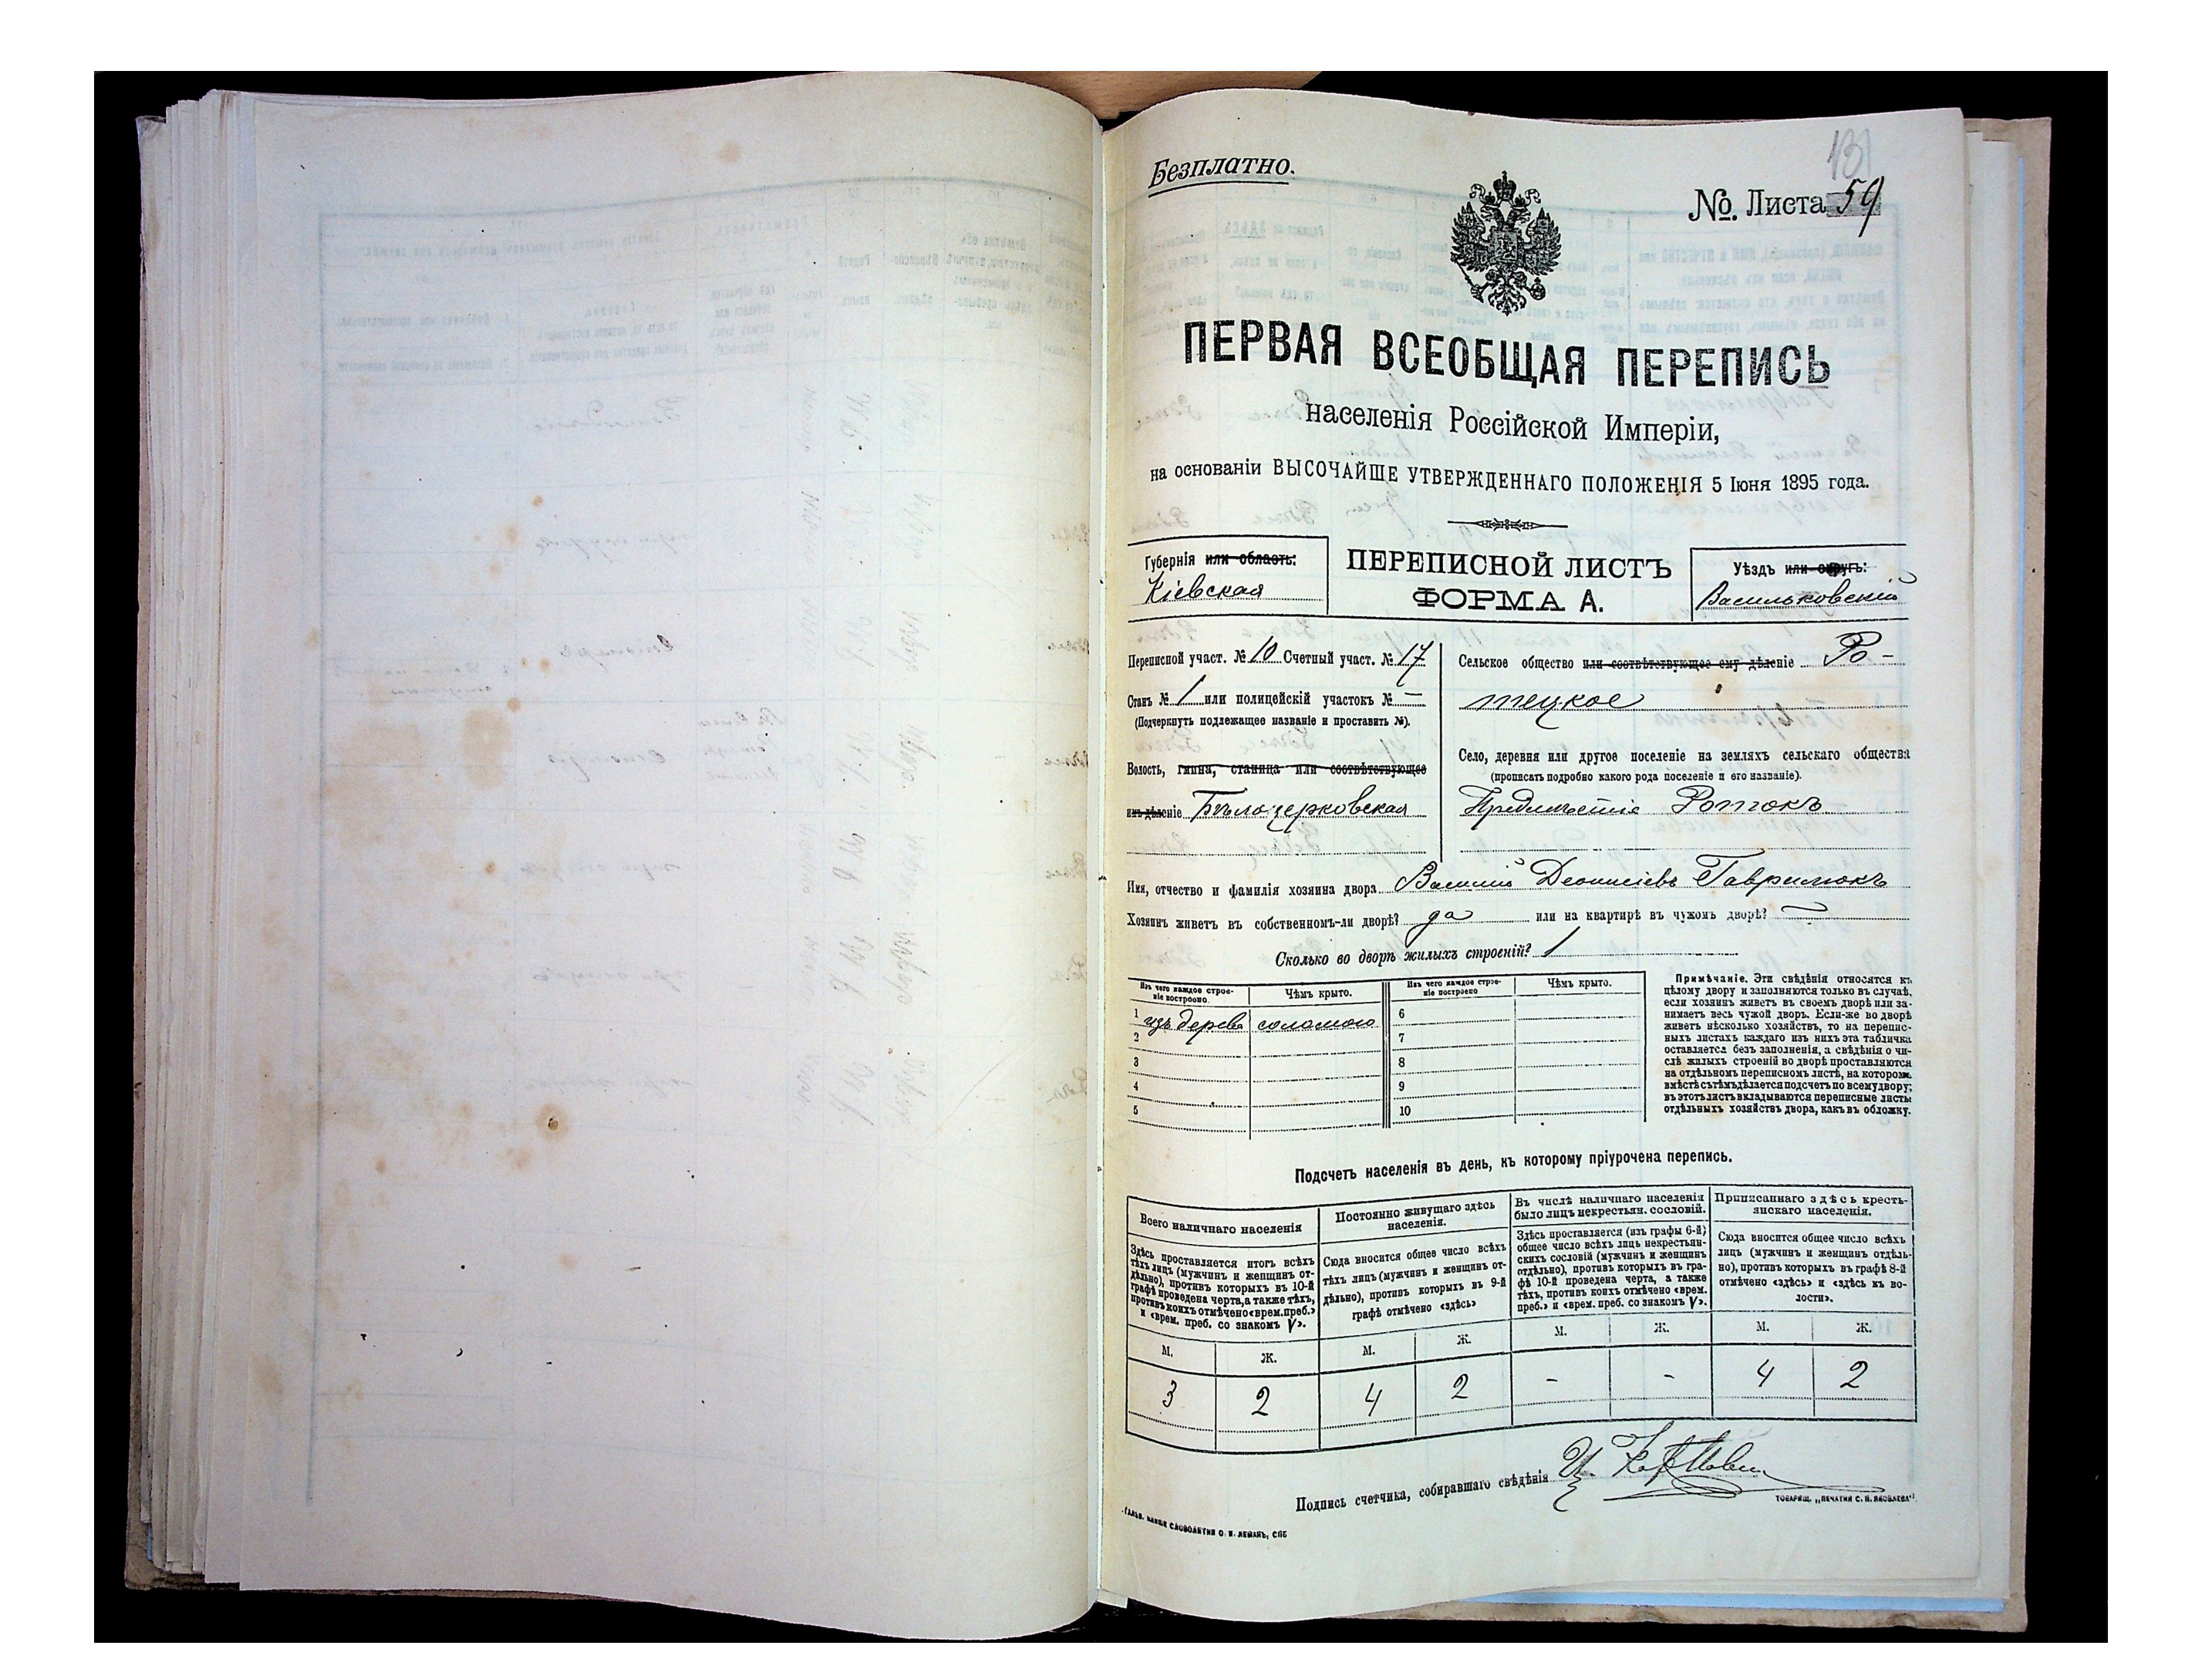 Безплатно.
131
№. Листа 59
ПЕРВАЯ ВСЕОБЩАЯ ПЕРЕПИСЬ
населенія Россійской Имперіи,
на основаніи ВЫСОЧАЙШЕ УТВЕРЖДЕННАГО ПОЛОЖЕНІЯ 5 Іюня 1895 года.
Губернія или область:
Кіевская
ПЕРЕПИСНОЙ ЛИСТЪ
ФОРМА А.
Уѣздъ или округъ:
Васильковскій
Переписной участ. № 10 Счетный участ. № 17
Станъ № 1 или полицейскій участокъ № —
(Подчеркнуть подлежащее названіе и проставить №).
Волость, гмина, станица или соотвѣтствующее
имъ дѣленіе Бѣлоцерковская
Сельское общество или соотвѣтствующее ему дѣленіе Ро-
тецкое
Село, деревня или другое поселеніе на земляхъ сельскаго общества
(прописать подробно какого рода поселеніе и его названіе).
Предмѣстіе Ротокъ
Имя, отчество и фамилія хозяина двора Василій Деонисіевъ Гаврилюкъ
Хозяинъ живетъ въ собственномъ-ли дворѣ? да или на квартирѣ въ чужомъ дворѣ? —
Сколько во дворѣ жилыхъ строеній? 1
Изъ чего каждое строе-
ніе построено.
Чѣмъ крыто.
Изъ чего каждое строе-
ніе построено
Чѣмъ крыто.
1 изъ дерева соломою
2
3
4
5
6
7
8
9
10
Примѣчаніе. Эти свѣдѣнія относятся къ
цѣлому двору и заполняются только въ случаѣ,
если хозяинъ живетъ въ своемъ дворѣ или за-
нимаетъ весь чужой дворъ. Если-же во дворѣ
живетъ нѣсколько хозяйствъ, то на перепис-
ныхъ листахъ каждаго изъ нихъ эта табличка
оставляется безъ заполненія, а свѣдѣнія о чи-
слѣ жилыхъ строеній во дворѣ проставляются
на отдѣльномъ переписномъ листѣ, на которомъ
вмѣстѣ съ тѣмъ дѣлается подсчетъ по всему двору;
въ этотъ листъ вкладываются переписные листы
отдѣльныхъ хозяйствъ двора, какъ въ обложку.
Подсчетъ населенія въ день, къ которому пріурочена перепись.
Всего наличнаго населенія
Здѣсь проставляется итогъ всѣхъ
тѣхъ лицъ (мужчинъ и женщинъ от-
дѣльно), противъ которыхъ въ 10-й
графѣ проведена черта, а также тѣхъ,
противъ коихъ отмѣчено «врем. преб.»
и «врем. преб. со знакомъ V».
Постоянно живущаго здѣсь
населенія.
Сюда вносится общее число всѣхъ
тѣхъ лицъ (мужчинъ и женщинъ от-
дѣльно), противъ которыхъ въ 9-й
графѣ отмѣчено «здѣсь»
Въ числѣ наличнаго населенія
было лицъ некрестьян. сословій.
Здѣсь проставляется (изъ графы 6-й)
общее число всѣхъ лицъ некрестьян-
скихъ сословій (мужчинъ и женщинъ
отдѣльно), противъ которыхъ въ гра-
фѣ 10-й проведена черта, а также
тѣхъ, противъ коихъ отмѣчено «врем.
преб.» и «врем. преб. со знакомъ V».
Приписаннаго здѣсь кресть-
янскаго населенія.
Сюда вносится общее число всѣхъ
лицъ (мужчинъ и женщинъ отдѣль-
но), противъ которыхъ въ графѣ 8-й
отмѣчено «здѣсь» и «здѣсь къ во-
лости».
М. Ж. М. Ж. М. Ж. М. Ж.
3 2 4 2 - - 4 2
Подпись счетчика, собиравшаго свѣдѣнія
ТОВАРИЩ. „ПЕЧАТНЯ С. П. ЯКОВЛЕВА“
СЛОВОЛИТНИ О. И. ЛЕМАНЪ, СПБ